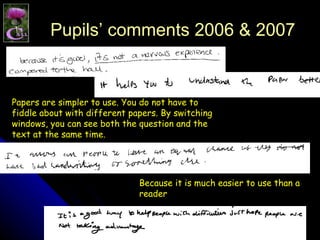 Pupils' comments 2006 & 2007
because it is good, its not a nervous experience.
compared to the hall.
It helps you to understand the paper better
Papers are simpler to use. You do not have to
fiddle about with different papers. By switching
windows, you can see both the question and the
text at the same time.
It allows all People to have an equal chance if they do not
have bad handwriting or something else.
Because it is much easier to use than a
reader
It is a good way to help people with difficulties just hope people are
Not taking advantage